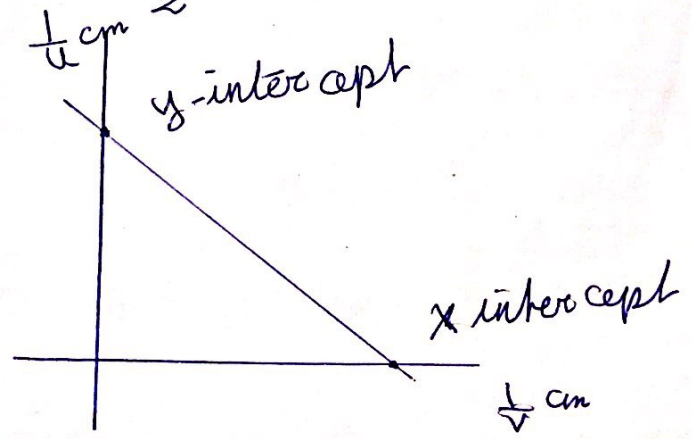 1/u cm
y-intercept
x intercept
1/v cm